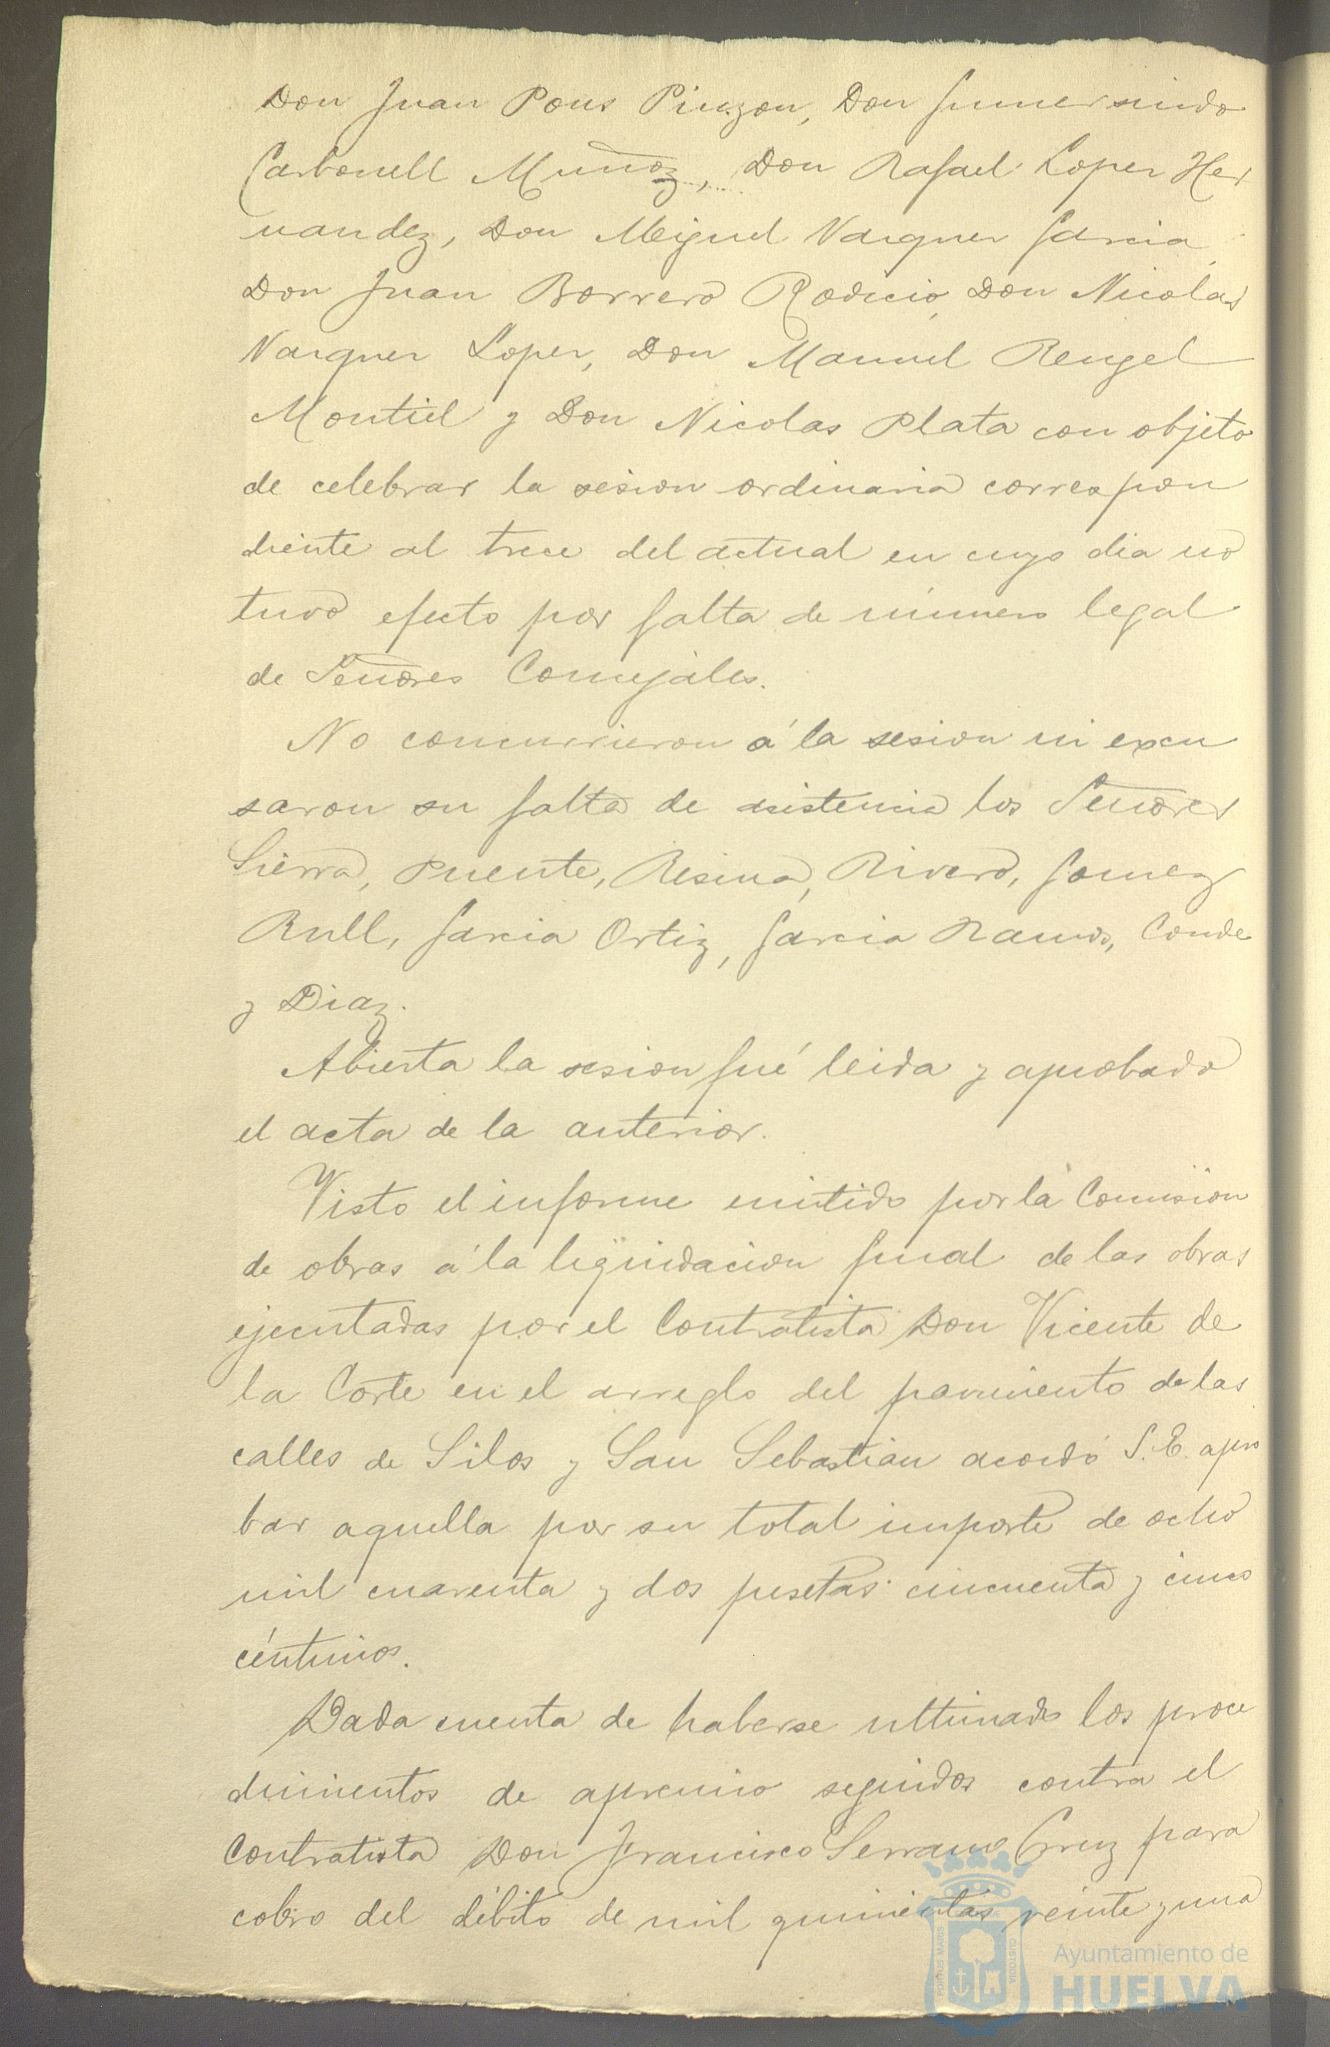 Don Juan Pons Pinzon, Don Gumersindo
Carbonell Muñoz, Don Rafael Lopez Her
nandez, Don Miguel Vazquez Garcia,
Don Juan Borrero Rodicio, Don Nicolas
Vazquez Lopez, Don Manuel Rengel
Montiel y Don Nicolas Plata con objeto
de celebrar la sesion ordinaria correspon
diente al trece del actual en cuyo dia no
tuvo efecto por falta de número legal
de Señores Concejales.
No concurrieron á la sesion ni excu
saron su falta de asistencia los Señores
Sierra, Puente, Resina, Rivero, Gomez
Rull, Garcia Ortiz, Garcia Ramos, Conde
y Diaz.
Abierta la sesion fué leida y aprobado
el acta de la anterior.
Visto el informe emitido por la Comision
de obras á la liquidacion final de las obras
ejecutadas por el Contratista Don Vicente de
la Corte en el arreglo del pavimento de las
calles de Silos y San Sebastian acordó S.E. apro
bar aquella por su total importe de ocho
mil cuarenta y dos pesetas cincuenta y cinco
céntimos.
Dada cuenta de haberse ultimado los proce
dimientos de apremio seguidos contra el
Contratista Don Francisco Serrano Cruz para
cobro del débito de mil quinientas veinte y una
PORTUS MARIS CUSTODIA
Ayuntamiento de
HUELVA